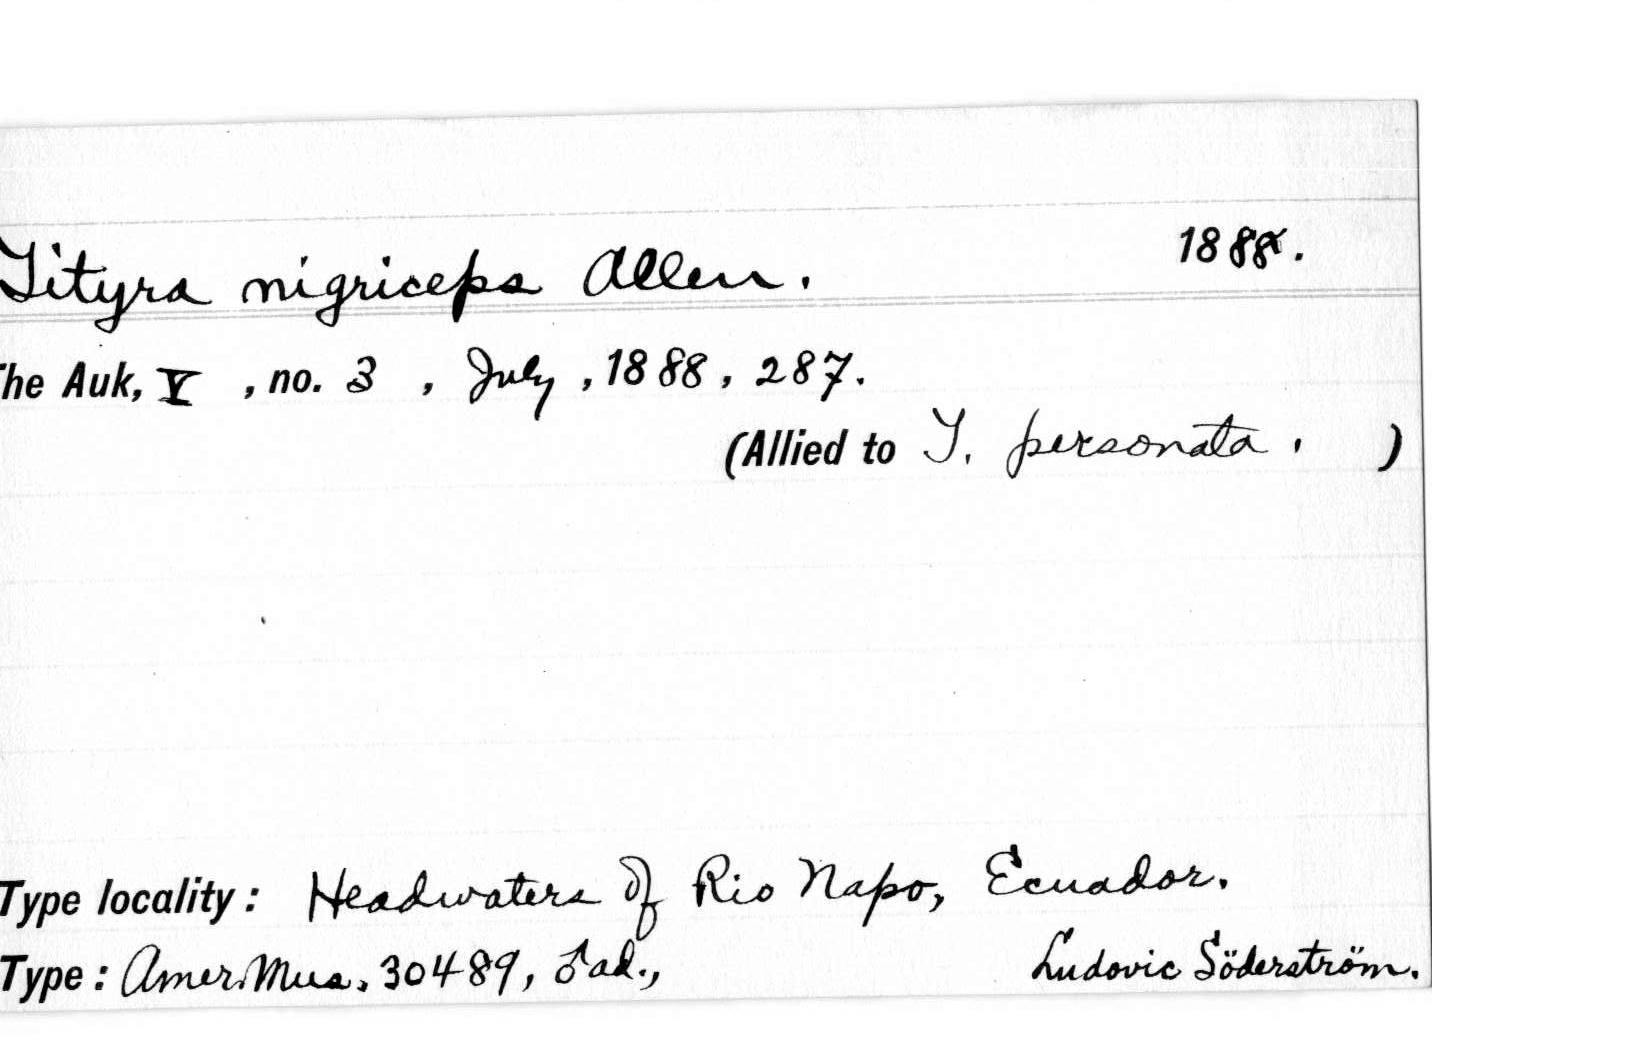 Tityra nigriceps Allen. 1888.
The Auk, V , no. 3 , July , 1888 , 287.
(Allied to T. personata . )
Type locality : Headwaters of Rio Napo, Ecuador.
Type : Amer. Mus. 30489, ♂ ad., Ludovic Söderström.